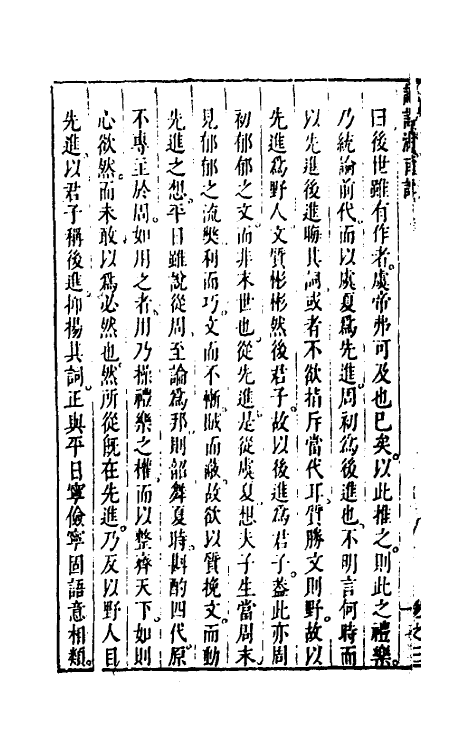 曰後世雖有作者虞帝弗可及也已矣。以此推之。則此之禮樂。
乃統論前代。而以虞夏爲先進。周初爲後進也。不明言何時而
以先進後進晦其詞。或者不欲指斥當代耳。質勝文則野。故以
先進爲野人。文質彬彬。然後君子。故以後進爲君子。蓋此亦周
初郁郁之文。而非末世也。從先進是從虞夏。想夫子生當周末
見郁郁之流獘。利而巧。文而不慚。賊而蔽。故欲以質挽文。而動
先進之想。平日雖說從周。至論爲邦。則韶舞夏時。斟酌四代。原
不專主於周。如用之者。用乃操禮樂之權。而以整齊天下。如則
心欲然。而未敢以爲必然也。然所從旣在先進。乃反以野人目
先進。以君子稱後進。抑揚其詞。正與平日寧儉寧固語意相類。